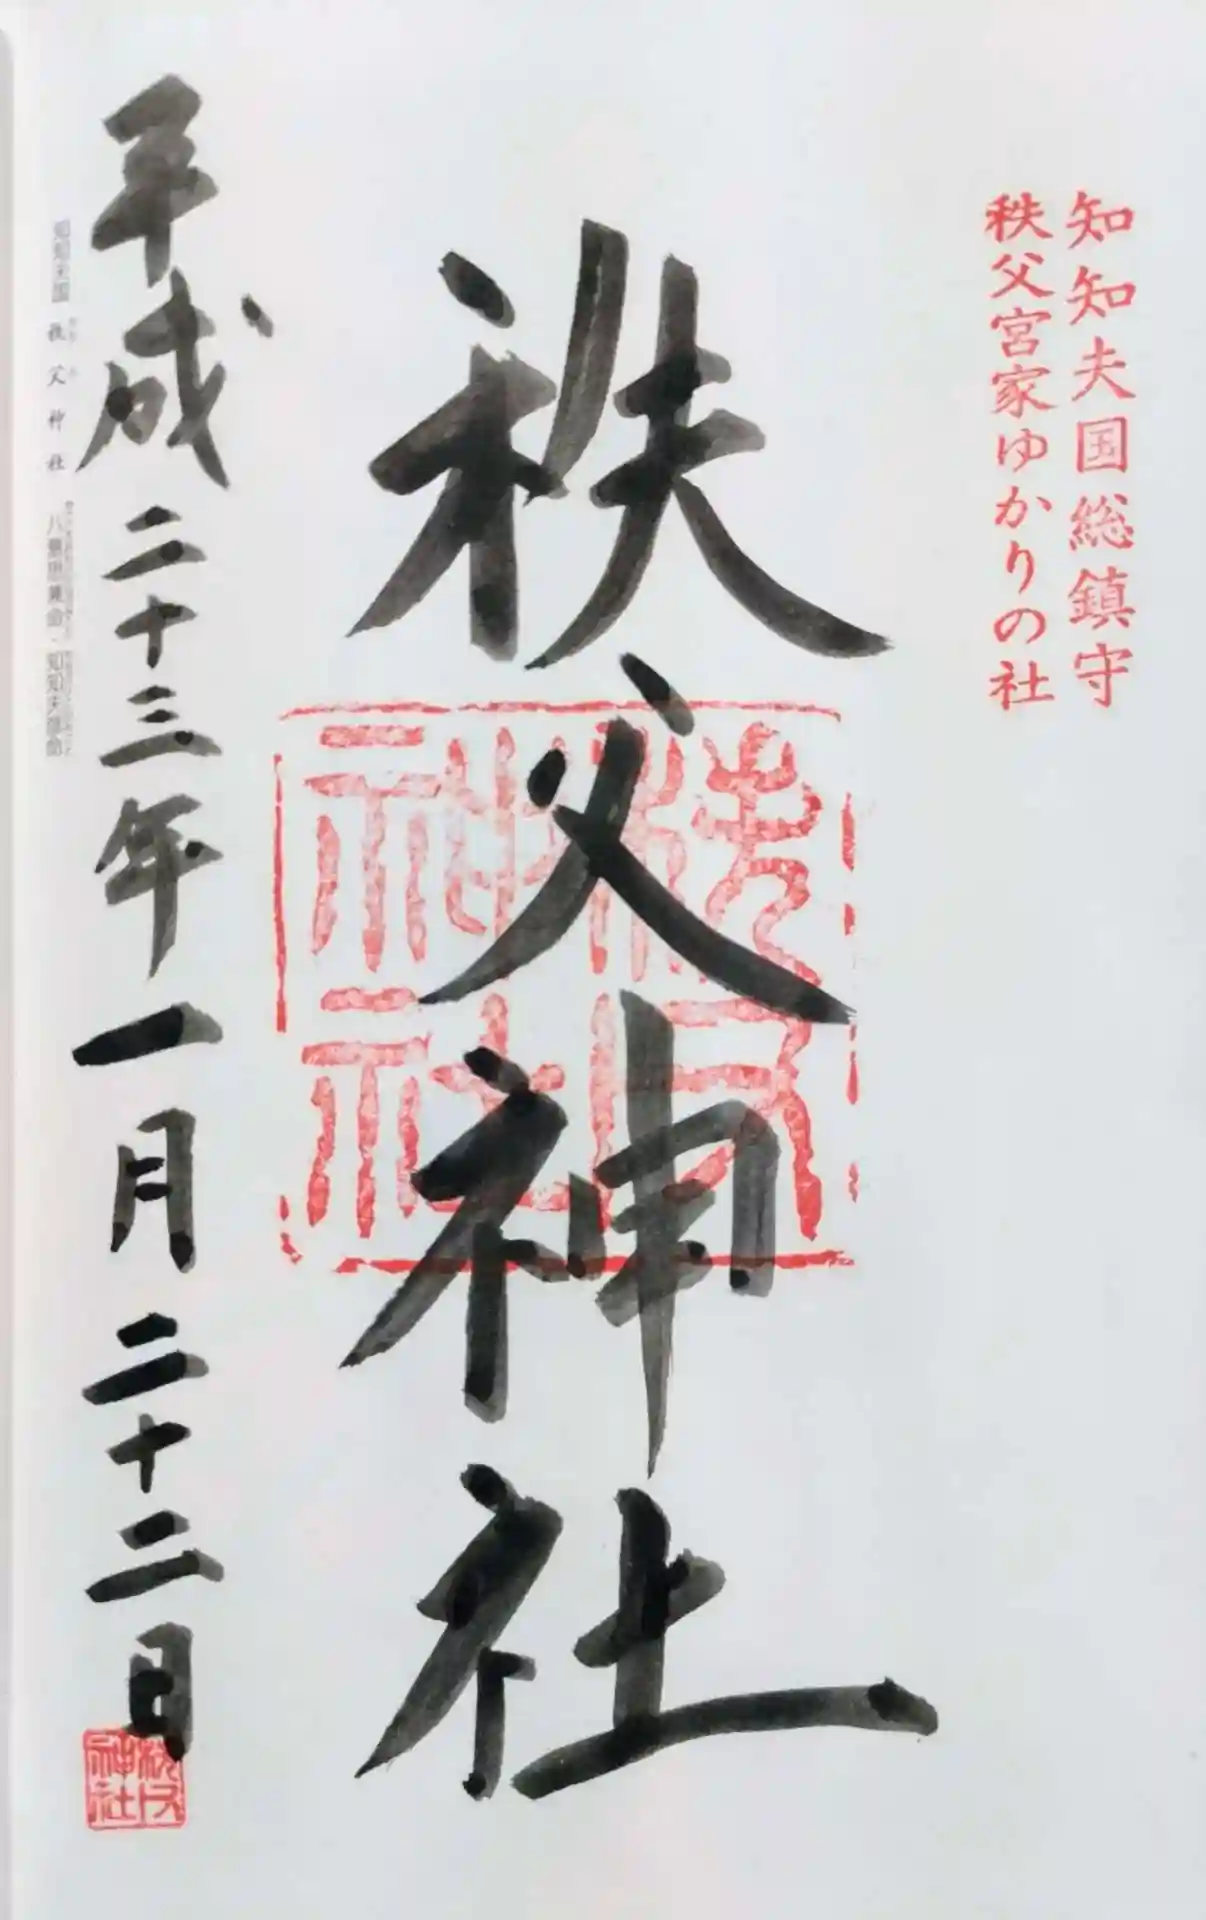 知知夫国総鎮守
秩父宮家ゆかりの社
秩父神社
秩父神社
平成二十三年一月二十二日
秩父神社
知知夫国 秩父神社 八意思兼命・知知夫彦命